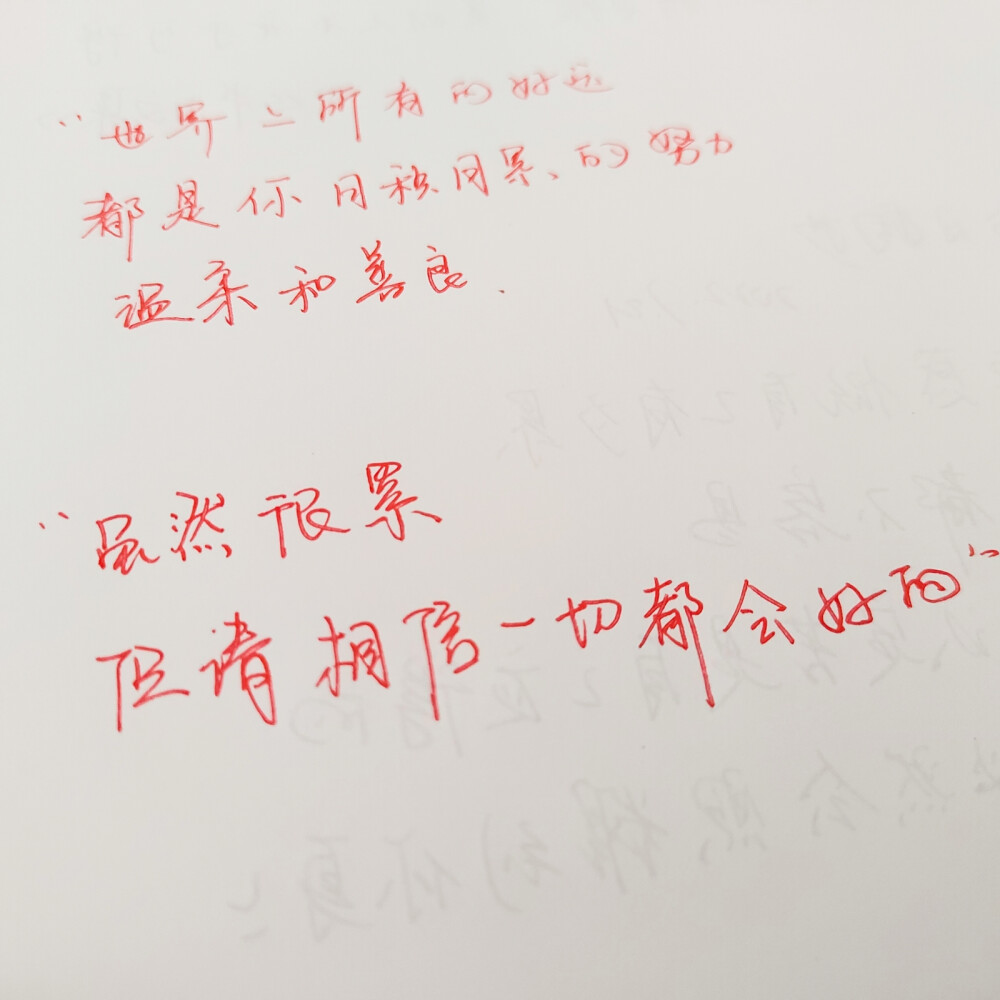 “世界上所有的好运
都是你日积月累、的努力
温柔和善良.
“虽然很累
但请相信一切都会好的”